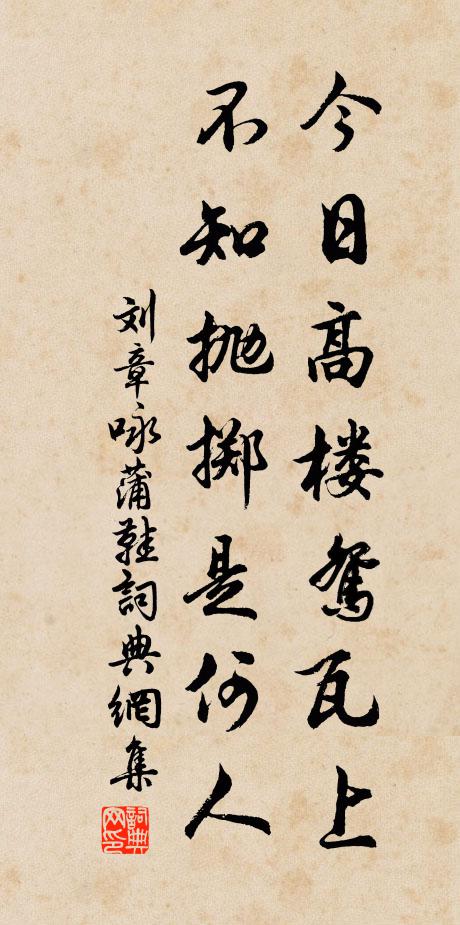 今日高楼鸳瓦上
不知抛掷是何人
刘章咏蒲鞋詞典網集
詞典
网印